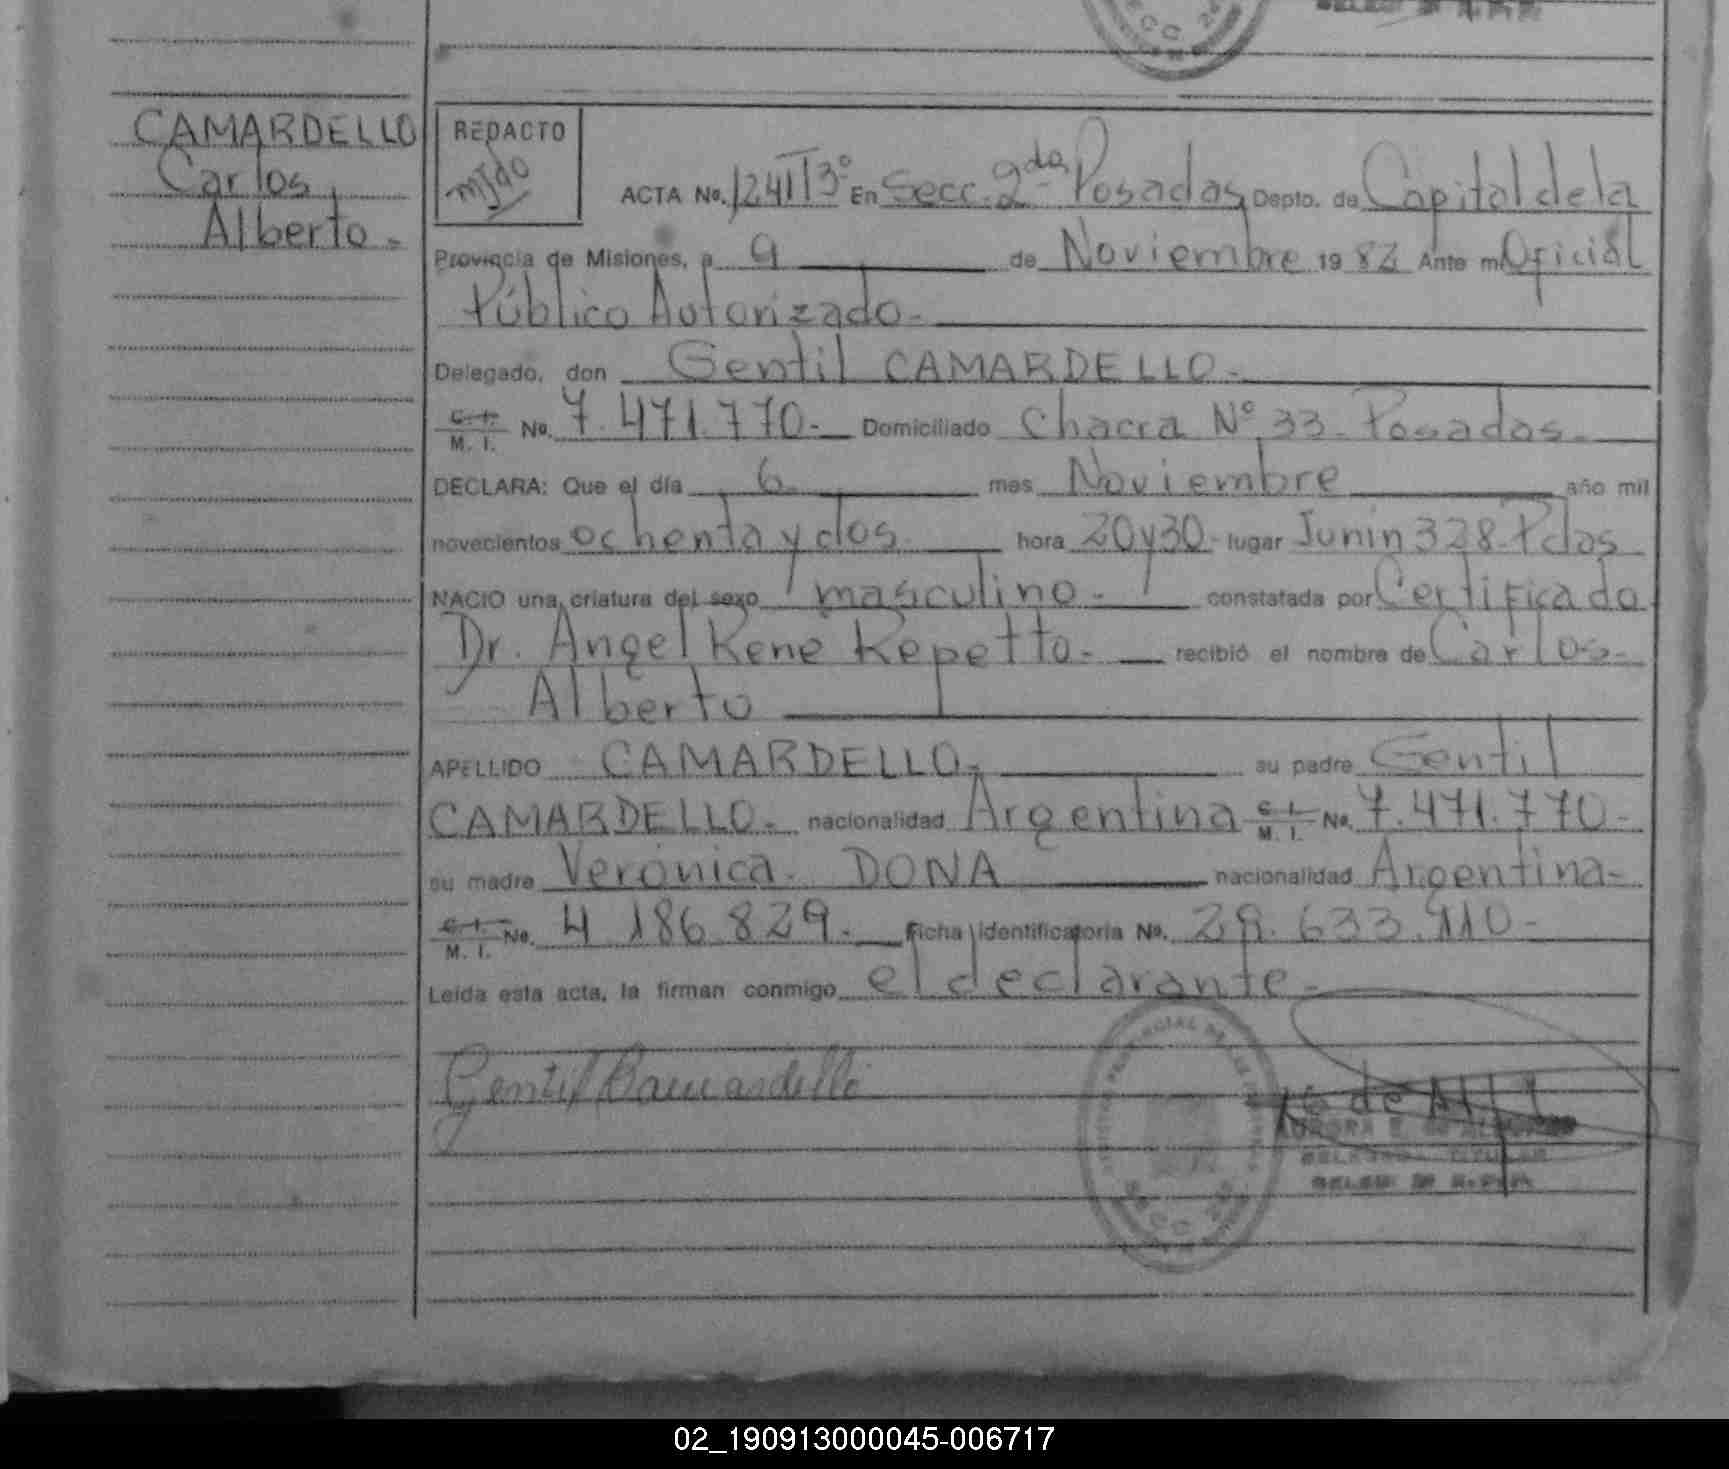 CAMARDELLO
Carlos
Alberto.
REDACTO
ACTA No. 1241T3° En Secc. 2da Posadas Depto. de Capital de la
Provincia de Misiones, a 9 de Noviembre 1982 Ante mí Oficial
Público Autorizado.
Delegado, don Gentil CAMARDELLO.
C. I.
M. I. No. 7.471.770. Domiciliado Chacra N° 33. Posadas.
DECLARA: Que el día 6 mes Noviembre año mil
novecientos ochenta y dos hora 20 y 30 lugar Junín 328 Pdas
NACIO una criatura del sexo masculino. constatada por Certificado
Dr. Angel Rene Repetto. recibió el nombre de Carlos
Alberto
APELLIDO CAMARDELLO. su padre Gentil
CAMARDELLO. nacionalidad Argentina C. I. M. I. No. 7.471.770.
su madre Verónica DONA nacionalidad Argentina
C. I.
M. I. No. 4 186.829. Ficha identificatoria No. 29.633.910
Leída esta acta, la firman conmigo el declarante.
Gentil Camardello
02_190913000045-006717